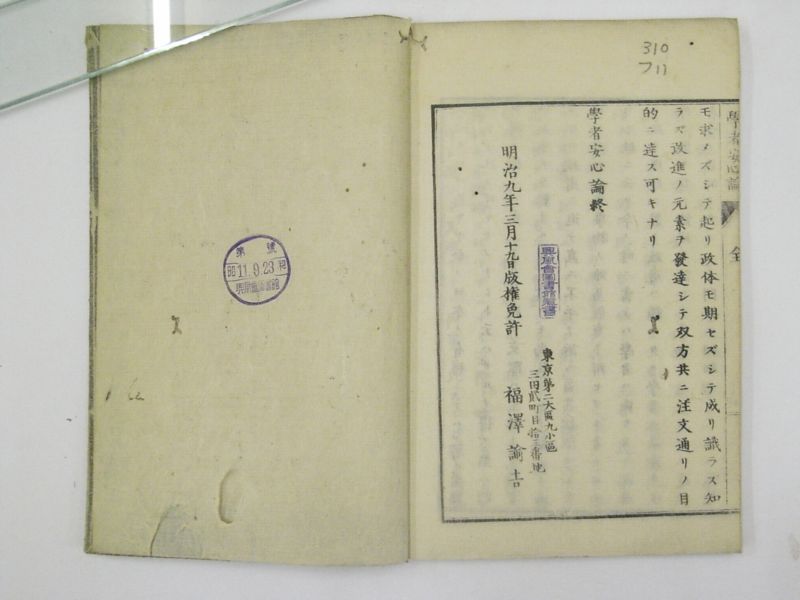 310
フ11
學者安心論
全
モ求メズシテ起リ政体モ期セズシテ成リ識ラス知
ラズ改進ノ元素ヲ發達シテ双方共ニ注文通リノ目
的ニ達ス可キナリ
學者安心論終
興風會圖書館蔵書
明治九年三月十九日版権免許
東京第二大區九小區
三田貳町目拾三番地
福澤諭吉
第 號
昭11.9.23和
興風會圖書館